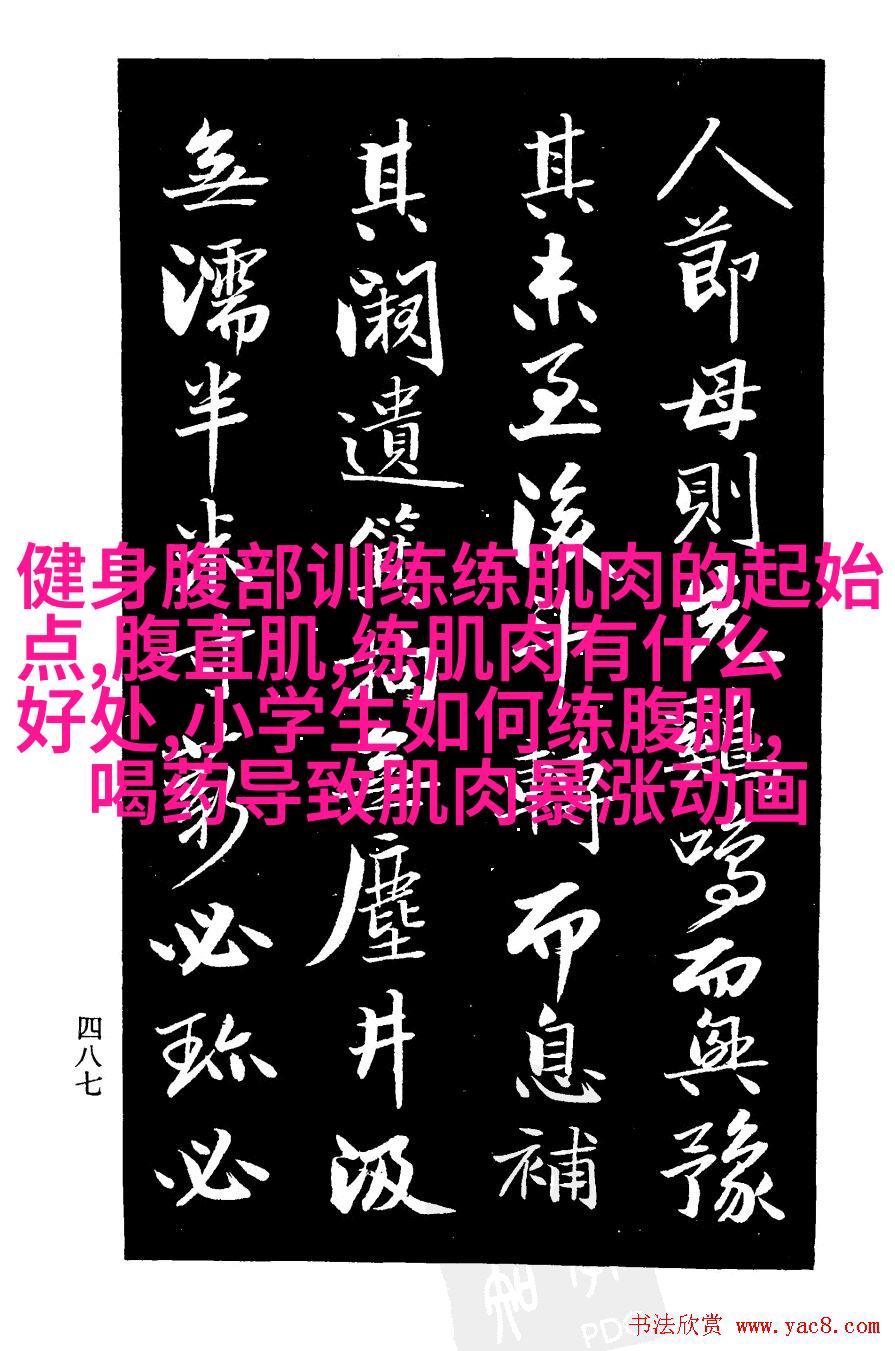 人節母則先雞鳴而興豫
其未至後斗轉而息補
其闕遺簠埽塵井汲
無濡半米寸薪必珎必
健身腹部训练练肌肉的起始
点,腹直肌,练肌肉有什么
好处,小学生如何练腹肌,
喝药导致肌肉暴涨动画
四八七
书法欣赏 www.yac8.com